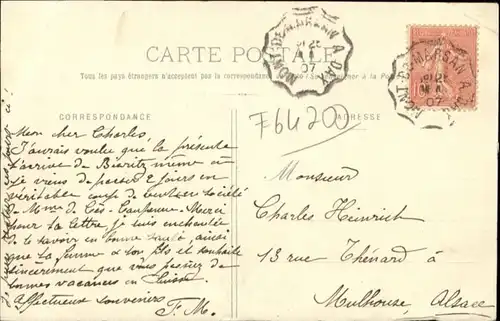 CARTE POSTALE
Tous les pays étrangers n'acceptent pas la correspondance au à la Poste
MONT-DE-MARSAN A DAX
07
MONT-DE-MARSAN A DAX
07
CORRESPONDANCE
ADRESSE
F64200
Mon cher Charles,
J'aurais voulu que la présente
t'arrive de Biarritz même où
je viens de passer 2 jours en
véritable de société
de Mme de Merci
pour ta lettre, je suis enchantée
de te savoir en bonne santé, ainsi
que ta femme & ton fils et souhaite
sincèrement que vous passiez de
bonnes vacances en Suisse.
Affectueux souvenirs
F. M.
Monsieur
Charles Heinrich
13 rue Thénard à
Mulhouse, Alsace